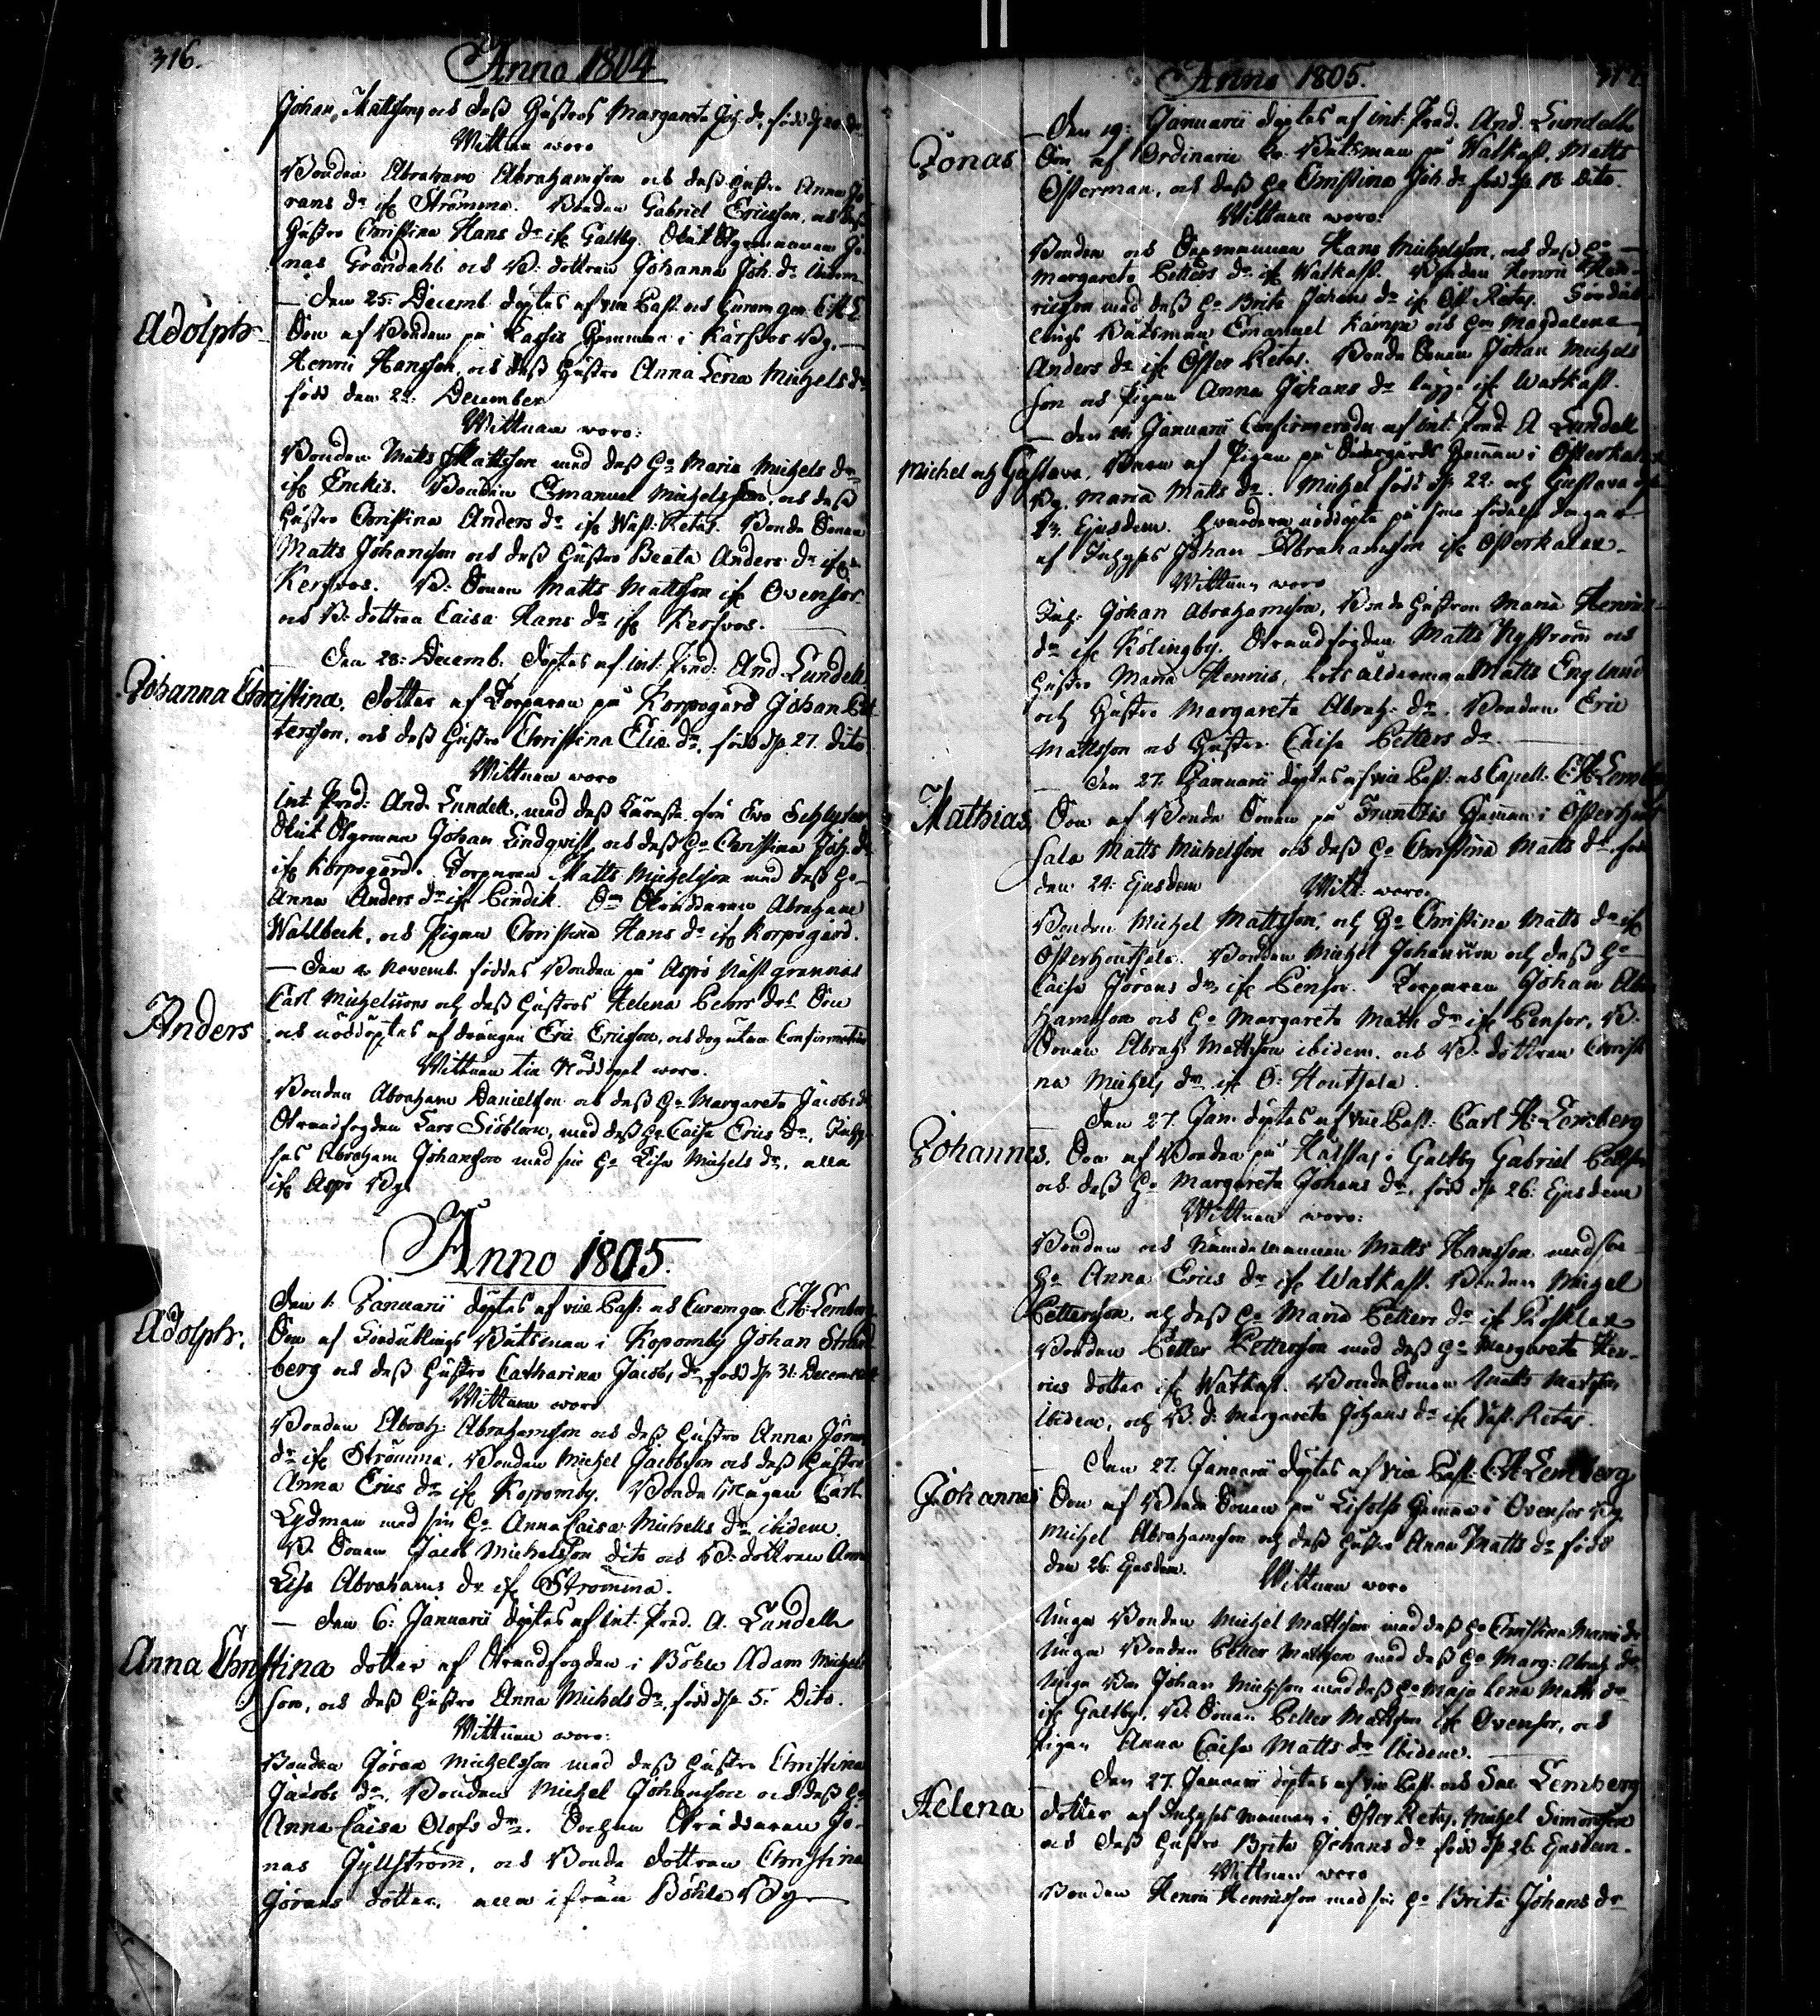 316.
Anno 1804
Johan Mattsons och dess Hustros Margareta Joh. dr, född d.
Wittnen woro
Bonden Abraham Abrahamsson och dess Hustro Anna Jö-
rans dr ifr Strömma. Bonden Gabriel Ericsson, och dess
Hustro Christina Hans dr ifr Galtby.
nas Gröndahl och B. dottren Johanna Joh. dr ibidem
— Den 25. Decemb. döptes af vice Past. och
Adolph
Son af Bonden på Hemman i Kärfvos By,
Henric Hansson, och dess Hustro Anna Lena Michels dr
född den 24. December
Wittnen woro:
Bonden Matts Mattsson med dess H:o Maria Michels dr
ifr Enckis. Bonden Emanuel Michelsson, och dess
Hustro Christina Anders dr ifr Wäst. Retais. Bonde Sonen
Matts Johansson och dess Hustro Beata Anders dr ifr
Kersvos. B. Sonen Matts Mattsson ifr Ovensor
och B. dottren Caisa Hans dr ifr Kersvos.
Den 28: Decemb. döptes af int. Præd: And. Lundell
Johanna Christina, dotter af Torparen på Korpogård Johan Pet-
tersson, och dess Hustro Christina Elia dr, född d. 27. dito
Wittnen woro
int. Præd: And. Lundell, med dess
Johan Lindqvist, och dess H:o Christina Joh. dr
ifr Korpogård. Torparen Matts Michelsson med dess H:o
Anna Anders dr ifr Abraham
Wahlbeck, och Pigan Christina Hans dr ifr Korpogård.
— Den 2. Novemb. föddes Bonden på Aspö
Carl Michelssons och dess Hustros Helena Petters drs Son
Anders
och nöddöptes af drängen Eric Ericsson, och dog utan Confirmation
Wittnen till Nöddopet woro.
Bonden Abraham Danielsson och dess H:o Margareta Jacobs dr
Strandfogden Lars Sjöblom, med dess H:o Caisa Erics dr, Inhy-
ses Abraham Johansson med sin H:o Lisa Michels dr, alla
ifr Aspö By
Anno 1805.
Den 1. Januarii döptes af vice Past: och C. H: Lemberg
Adolph.
Son af Båtsman i Kopomby Johan Strand-
berg och dess Hustro Catharina Jacobs dr, född d. 31. December
Wittnen woro
Bonden Abrah: Abrahamsson och dess Hustro Anna Jörans
dr ifr Strömma, Bonden Michel Jacobsson och dess Hustro
Anna Erics dr ifr Kopomby. Bonde Mågen Carl
Lydman med sin H:o Anna Caisa Michells dr ibidem.
B. Sonen Jacob Michelsson dito och B. dottren Anna
Lisa Abrahams dr ifr Strömma.
— Den 6: Januarii döptes af int. Præd. A. Lundell
Anna Christina dotter af Strandfogden i Böhle Adam Michels-
son, och dess Hustro Anna Michels dr, född d. 5. Dito.
Wittnen woro:
Bonden Jöran Michelsson med dess Hustro Christina
Jacobs dr. Bonden Michel Johansson och dess H:o
Anna Caisa Olofs dr. Jo-
nas Gyllström, och Bonde dottren Christina
Jörans dotter, alla ifrån Böhle By
Anno 1805.
— Den 19. Januarii döptes af int. Præd. And. Lundell
Jonas
Son af Ordinarie Båtsman på Watkast, Matts
Österman, och dess H:o Christina Joh. dr född d. 18 dito.
Wittnen woro:
Bonden och Hans Michelsson, och dess H:o
Margareta Petters dr ifr Watkast. Bonden Henric Hen-
ricsson med dess H:o Brita Johans dr ifr Öst. Retais.
Båtsman Emanuel Kämpe och H:on Magdalena
Anders dr ifr Öster Retais. Bonde Sonen Johan Michels-
son och Pigan Anna Johans dr ifr Watkast.
— Den Januarii Confirmerades af int. Præd. A Lundell
Michel och Gustava, Barn af Pigan på Södergårds Hemman i Österkalax
By, Maria Matts dr. Michel född d. 22. och Gustava d.
23. Ejusdem. nöddöpte på sine födelse dagar
af Inhyses Johan Abrahamsson ifr Österkalax
Wittnen woro
Inh: Johan Abrahamsson, Bonde Hustron Maria Henrics
dr ifr Kolingby. Strandfogden Matts Nyström och
Hustro Maria Hennis, Lots ålderman Matts Englund
och Hustro Margareta Abrah. dr. Bonden Eric
Mattsson och Hustro Caisa Petters dr
— Den 27. Januarii döptes af vice Past: och Capell. C. H. Lemberg
Mathias
Son af Bonde Sonen på Hemman i Österhout-
sala Matts Michelsson och dess H:o Christina Matts dr, född
den 24: Ejusdem Witt: woro
Bonden Michel Mattsson, och H:o Christina Matts dr ifr
Österhoutsala. Bonden Michel Johansson och dess H:o
Caisa Jörans dr, ifr Pensor. Torparen Johan Abra-
hamsson och H:o Margareta Matts dr ifr Pensor, B.
Sonen Abrah: Mattsson ibidem. och B. dottren Christi-
na Michels dr ifr Ö. Houtsala.
Den 27. Jan. döptes af vice Past. Carl H: Lemberg
Johannes.
Son af Bonden på i Galtby Gabriel Petters
och dess H:o Margareta Johans dr, född d. 26. Ejusdem
Wittnen woro:
Bonden och Nämdemannen Matts Hansson med sin
H:o Anna Erics dr ifr Watkast. Bonden Michel
Pettersson, och dess H:o Maria Petters dr ifr
Bonden Petter Pettersson med dess H:o Margareta Hen-
rics dotter ifr Watkast. Bonde Sonen Matts Mattsson
ibidem, och B. d: Margareta Johans dr ifr Retais
— Den 27. Januarii döptes af Vice Past. C. H Lemberg
Johannes
Son af Bonde Sonen på Hemman i Ovensor By
Michel Abrahamsson och dess Hustro Anna Matts dr född
den 26. Ejusdem.
Wittnen woro
Unga Bonden Michel Mattsson med dess H:o Christina
Unga Bonden Petter Mattsson med dess H:o Marg: Abrah dr
Unga Bon Johan Michelsson med dess H:o Maja Lena Matts dr
ifr Galtby. B. Sonen Petter Mattsson ifr Ovensor, och
Pigan Anna Caisa Matts dr ibidem.
— Den 27. Januarii döptes af vice Past. och Lemberg
Helena
dotter af Inhyses mannen i Öster Retais, Michel Simonsson
och dess Hustro Brita Johans dr född d. 26 Ejusdem.
Wittnen woro
Bonden Henric Henricsson med sin H:o Brita Johans dr